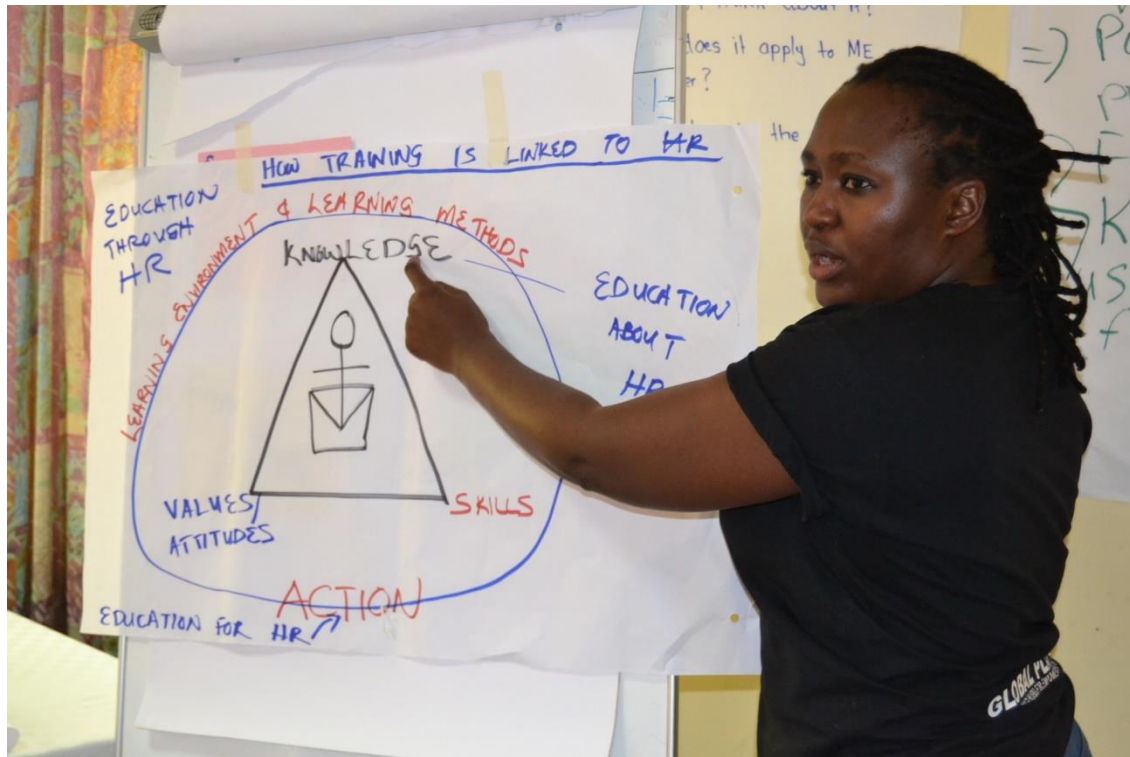 HOW TRAINING IS LINKED TO HR
EDUCATION
THROUGH
HR
LEARNING ENVIRONMENT & LEARNING METHODS
KNOWLEDGE
EDUCATION
ABOUT
HR
VALUES/
ATTITUDES
SKILLS
ACTION
EDUCATION FOR HR
about it?
does it apply to ME
the
GLOBAL